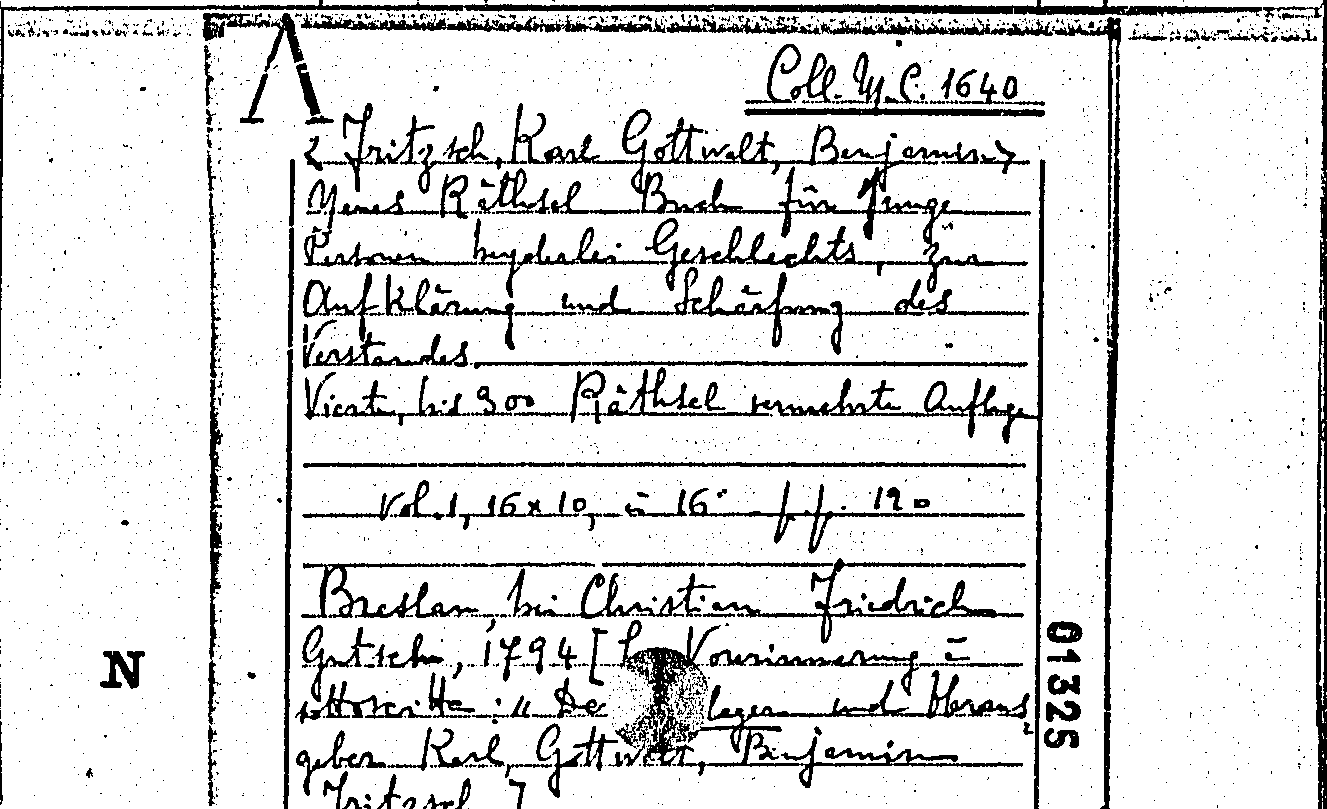 Coll. M.C. 1640
< Fritzsch, Karl Gottwalt, Benjamin>
Neues Räthsel Buch für Junge
Personen beyderlei Geschlechts, zur
Aufklärung und Schärfung des
Verstandes.
Vierte, bis 300 Räthsel vermehrte Auflage
Vol. 1, 16x10, in 16° pp. 120
Breslau, bei Christian Friedrich
Gutsch, 1794 [ Vorerinnerung è
sottoscritta: "De lagen und Heraus=
geber Karl, Gottwalt, Benjamin
Fritzsch ]
N
01325